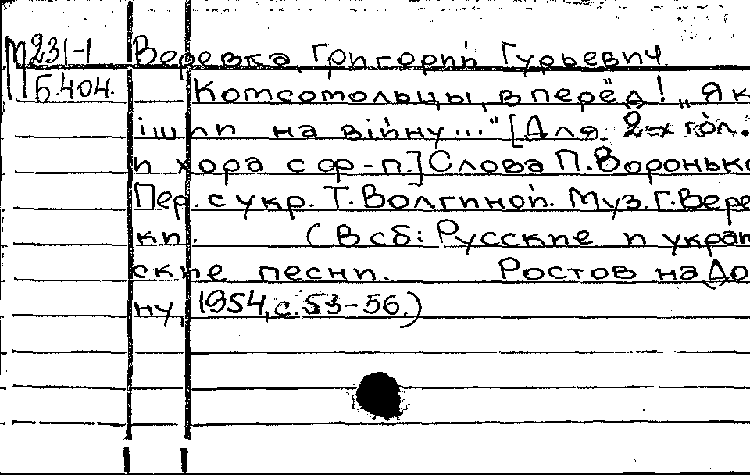 М231-1 Веревка, Григорий Гурьевич.
Б404. Комсомольцы, вперёд! "Як
ішли на війну..." [Для 2-х гол.
и хора с ф-п.] Слова П.Воронько
Пер. с укр. Т.Волгиной. Муз.Г.Вере
ки. (В сб: Русские и украи
ские песни. Ростов на До
ну, 1954, с.53-56.)